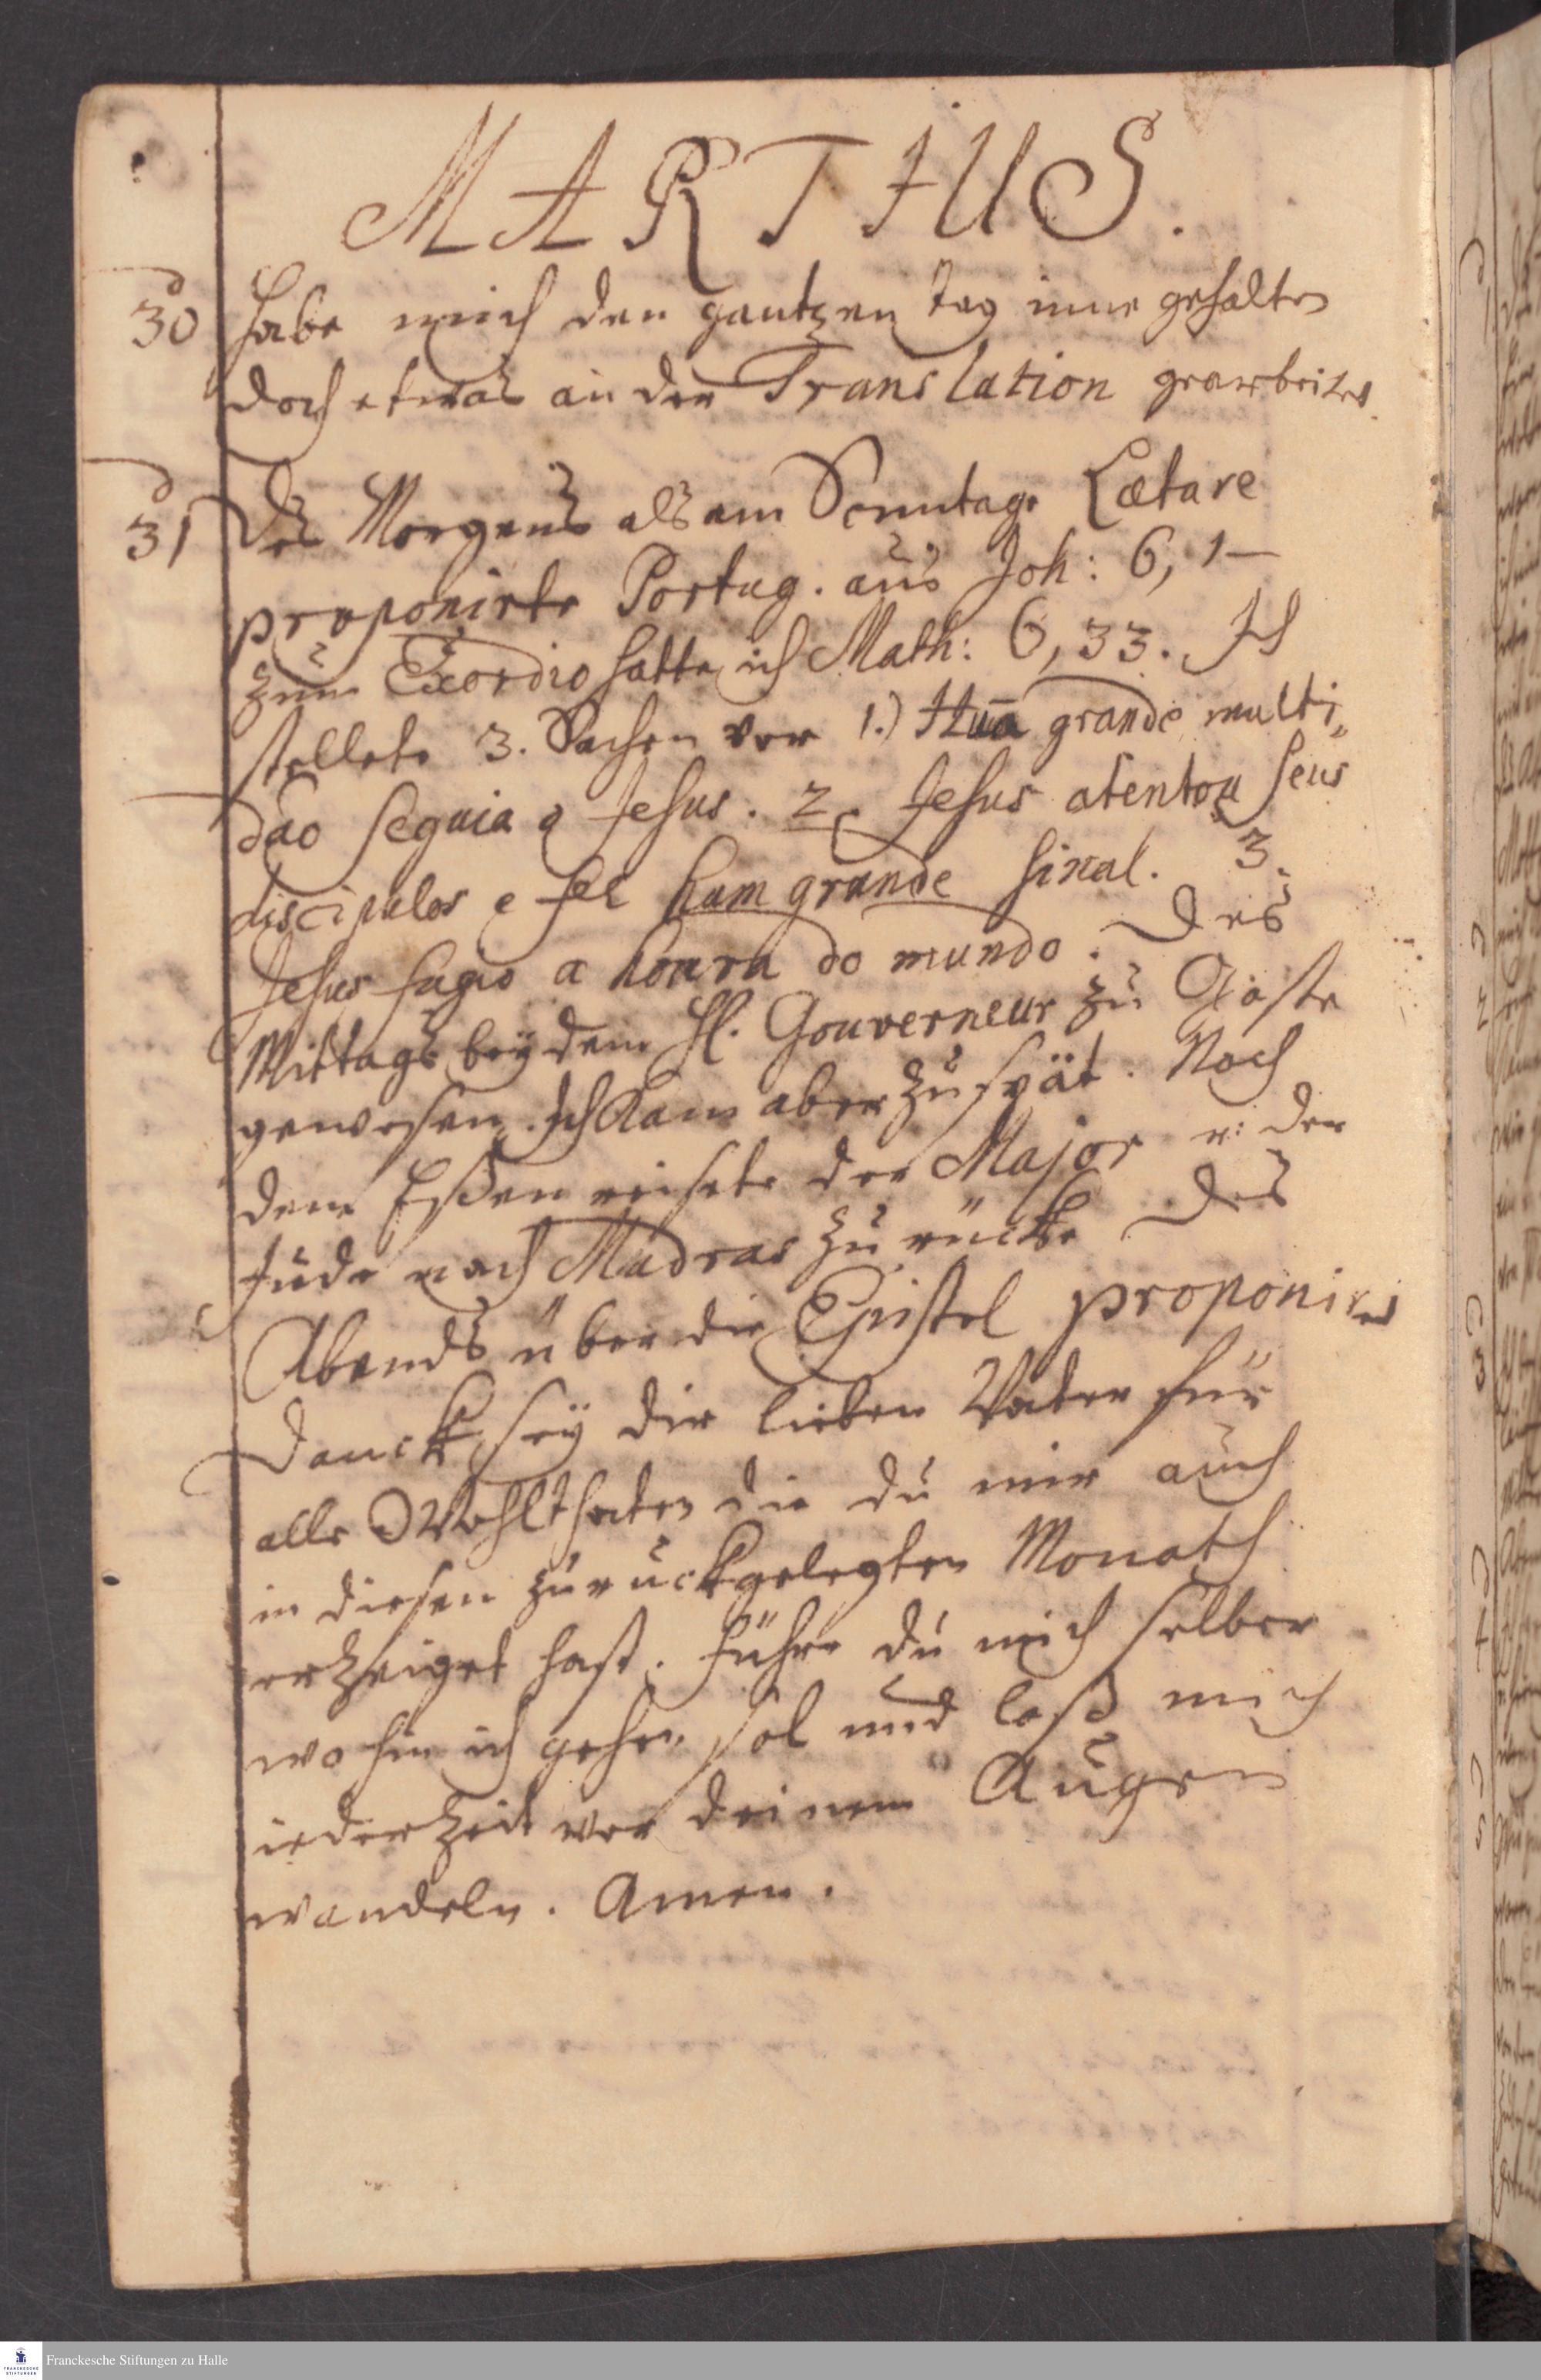 MARTIUS.
d 30 Habe mich den gantzen tag inne gehalten
doch etwas an der Translation gearbeitet
d 31 Des Morgens als am Sonntage Lætare
proponirte Portug. aus Joh: 6, 1—
zum Exordio hatte ich Math: 6, 33. Ich
stellete 3. Sachen vor 1.) Hũa grande multi„
dão seguia a Jesus. 2. Jesus atentou seus
discipulos e fez hum grande sinal. 3.
Jesus fugio a honra do mundo. Des
Mittags bey dem H. Gouverneur zu Gaste
gewesen. Ich kam aber zu spät. Nach
dem Eßen reisete der Major u: der
Jude nach Madras zurücke Des
Abends über die Epistel proponiret
Danck sey dir lieber Vater für
alle Wohlthaten die du mir auch
in diesen zurückgelegten Monath
erzeiget hast. Führe du mich selber
wohin ich gehen sol und laß mich
iederzeit vor deinem Augen
wandeln. Amen.
Franckesche Stiftungen zu Halle